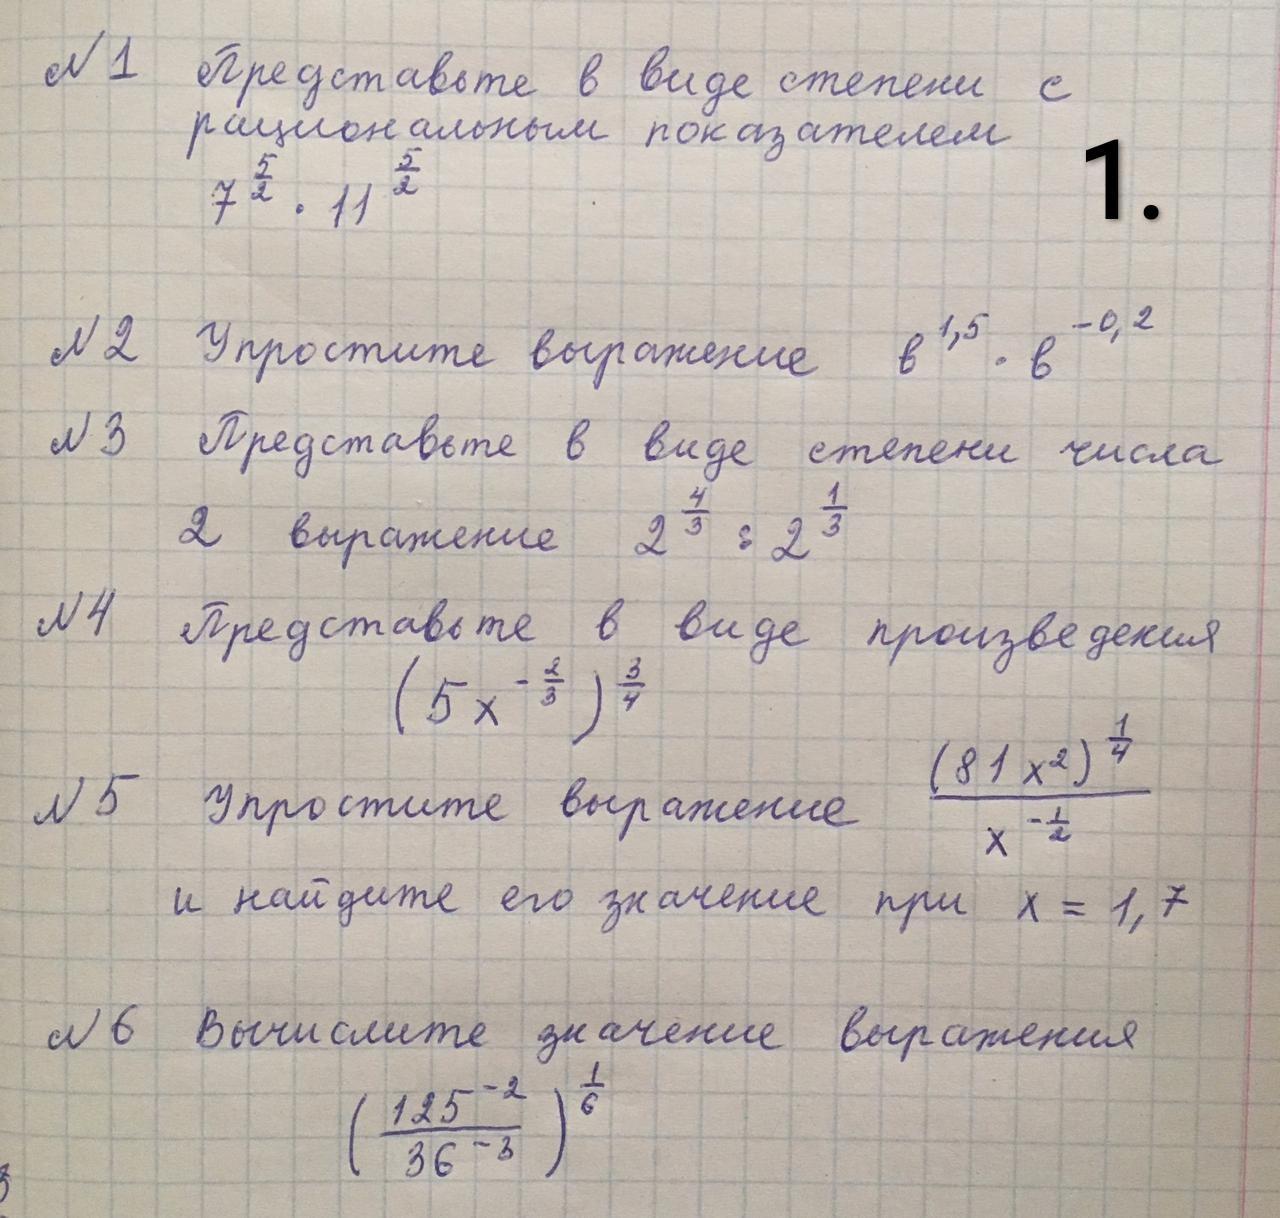 №1 Представьте в виде степени с
рациональным показателем
7^{5/2} · 11^{5/2}
1.
№2 Упростите выражение в^{1,5} · в^{-0,2}
№3 Представьте в виде степени числа
2 выражение 2^{4/3} : 2^{1/3}
№4 Представьте в виде произведения
(5x^{-2/3})^{3/4}
№5 Упростите выражение (81x²)^{1/4} / x^{-1/2}
и найдите его значение при x = 1,7
№6 Вычислите значение выражения
(125^{-2} / 36^{-3})^{1/6}